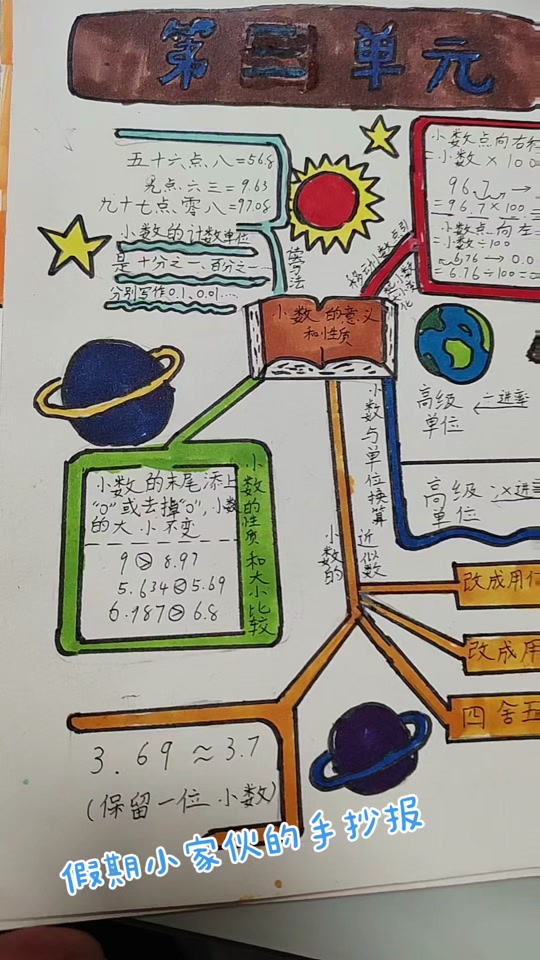 第三单元
五十六点.八=56.8
九点.六三=9.63
九十七点.零八=97.08
小数的计数单位
是十分之一、百分之一
分别写作0.1、0.01……
读写法
小数点向右
=小数×100
96.7 →
=96.7×100
小数点向左
=小数÷100
6.76 → 0.0
=6.76÷100=
移动小数点引
起小数
化
小数的意义
和性质
小数与单位换算
高级
单位
÷进率
高级
单位
×进
小数的末尾添上
"0"或去掉"0",小数
的大小不变
9 > 8.97
5.634 < 5.69
6.987 > 6.8
小数的性质和大小比较
小数的
近似数
改成用
改成用
四舍五
3.69≈3.7
(保留一位小数)
假期小家伙的手抄报